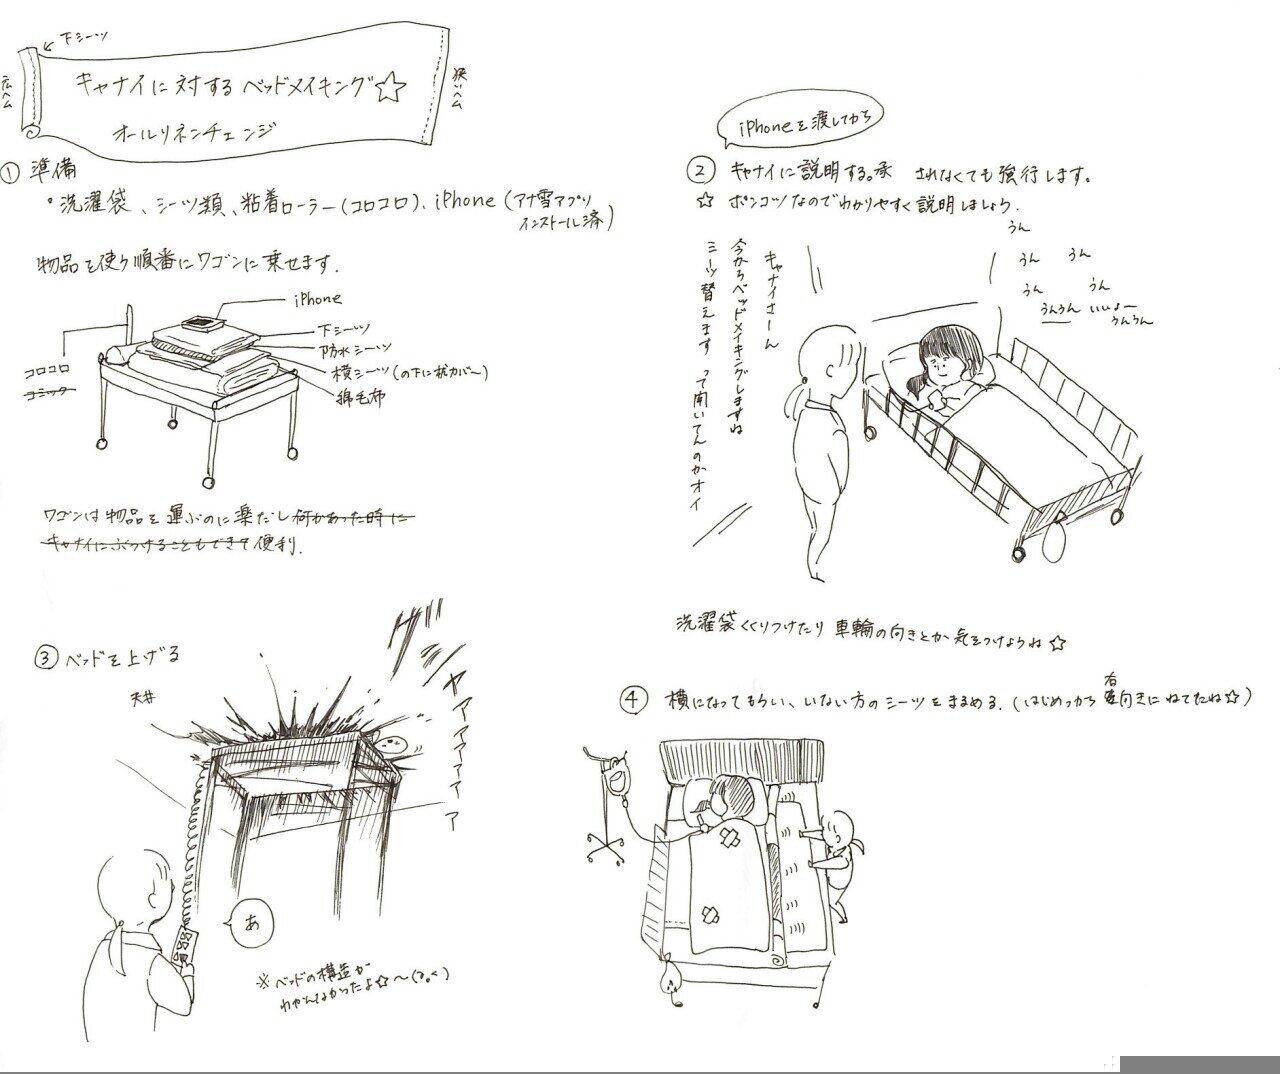 下シーツ
広いヘム
狭いヘム
キャナイに対するベッドメイキング☆
オールリネンチェンジ
① 準備
・洗濯袋、シーツ類、粘着ローラー(コロコロ)、iPhone(アナ雪アプリ
インストール済)
物品を使う順番にワゴンに乗せます.
iPhone
下シーツ
防水シーツ
横シーツ(の下に枕カバ〜)
綿毛布
コロコロ
コミック
ワゴンは物品を運ぶのに楽だし何かあった時に
キャナイにぶつけることもできて便利.
iPhoneを渡してから
② キャナイに説明する。承 されなくても強行します。
☆ ポンコツなのでわかりやすく説明しましょう.
キャナイさーん
今からベッドメイキングしますね
シーツ替えます って聞いてんのかオイ
うん
うん うん
うん うん
うんうん いいよー
うんうん
洗濯袋くくりつけたり車輪の向きとか気をつけようね☆
③ ベッドを上げる
天井
ヤアアアアアア
あ
※ベッドの構造が
わかんなかったよ☆〜
④ 横になってもらい、いない方のシーツをまるめる.(はじめっから右向きにねてたね☆)